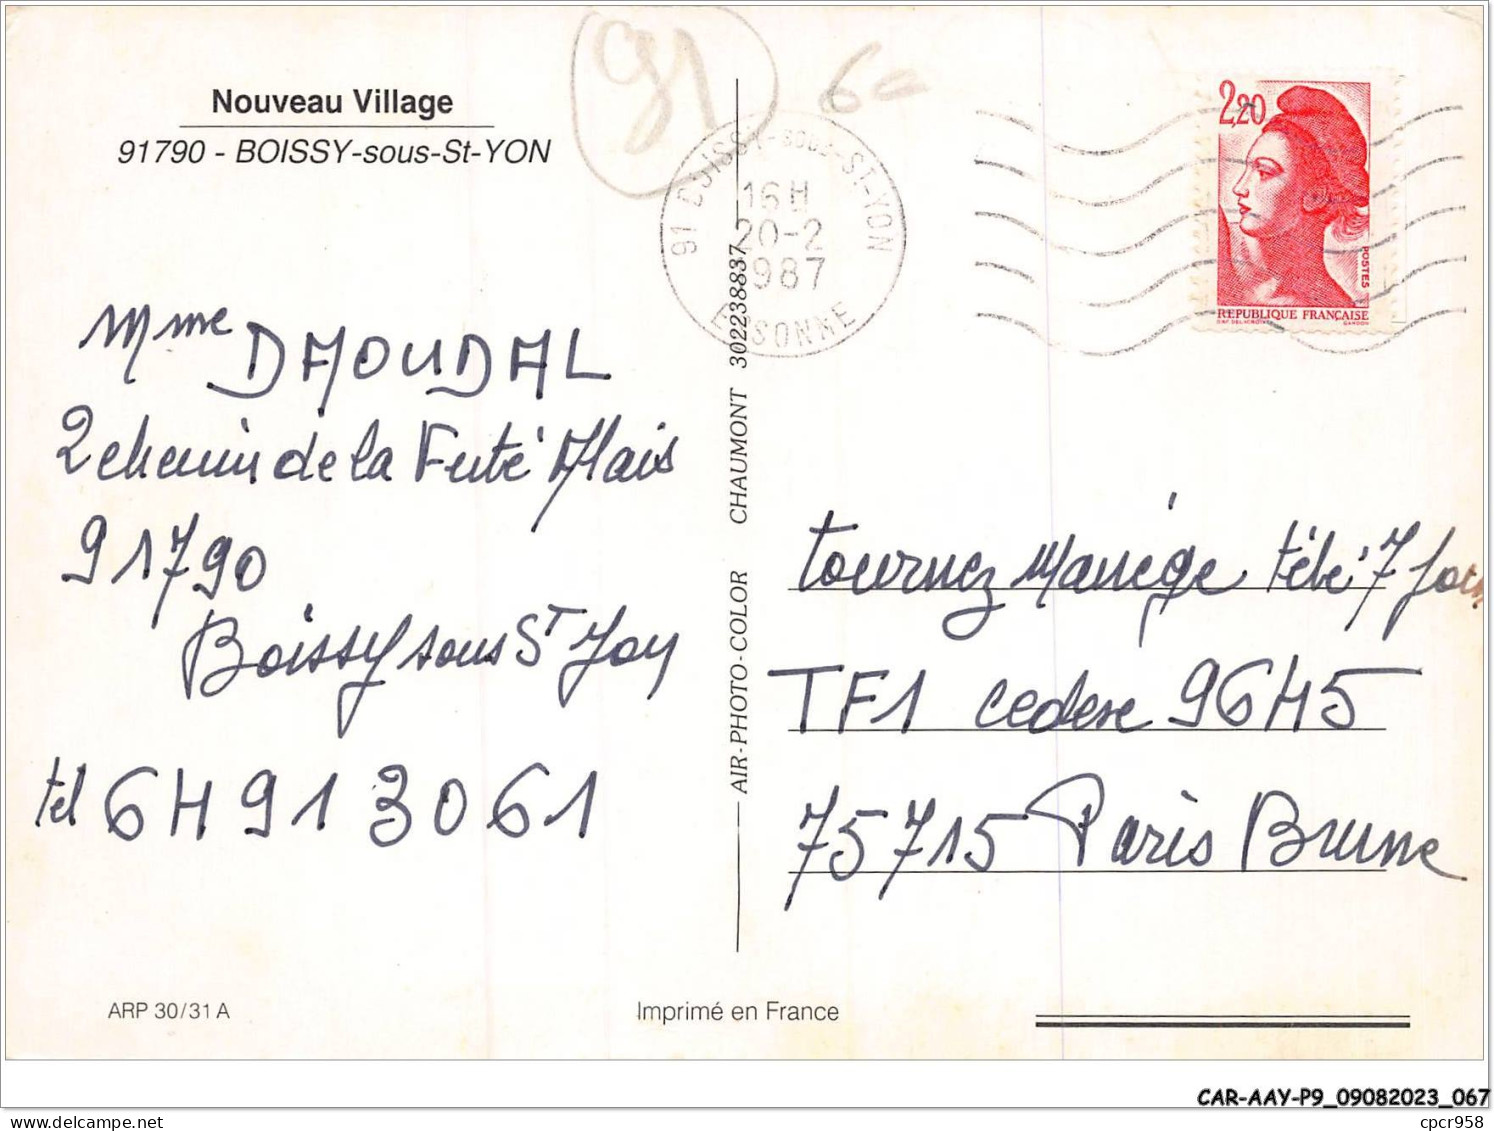 Nouveau Village
91790 - BOISSY-sous-St-YON
91
60
91 BOISSY-sous-St-YON
16H
20-2
1987
ESSONNE
2,20
POSTES
REPUBLIQUE FRANÇAISE
Mme DAOUDAL
2 chemin de la Ferté Alais
91790
Boissy sous St Yon
tel 64 91 30 61
AIR-PHOTO-COLOR CHAUMONT 302238837
tournez Manège télé 7 Jours
TF1 cedex 9645
75715 Paris Brune
ARP 30/31 A
Imprimé en France
CAR-AAY-P9_09082023_067
cpcr958